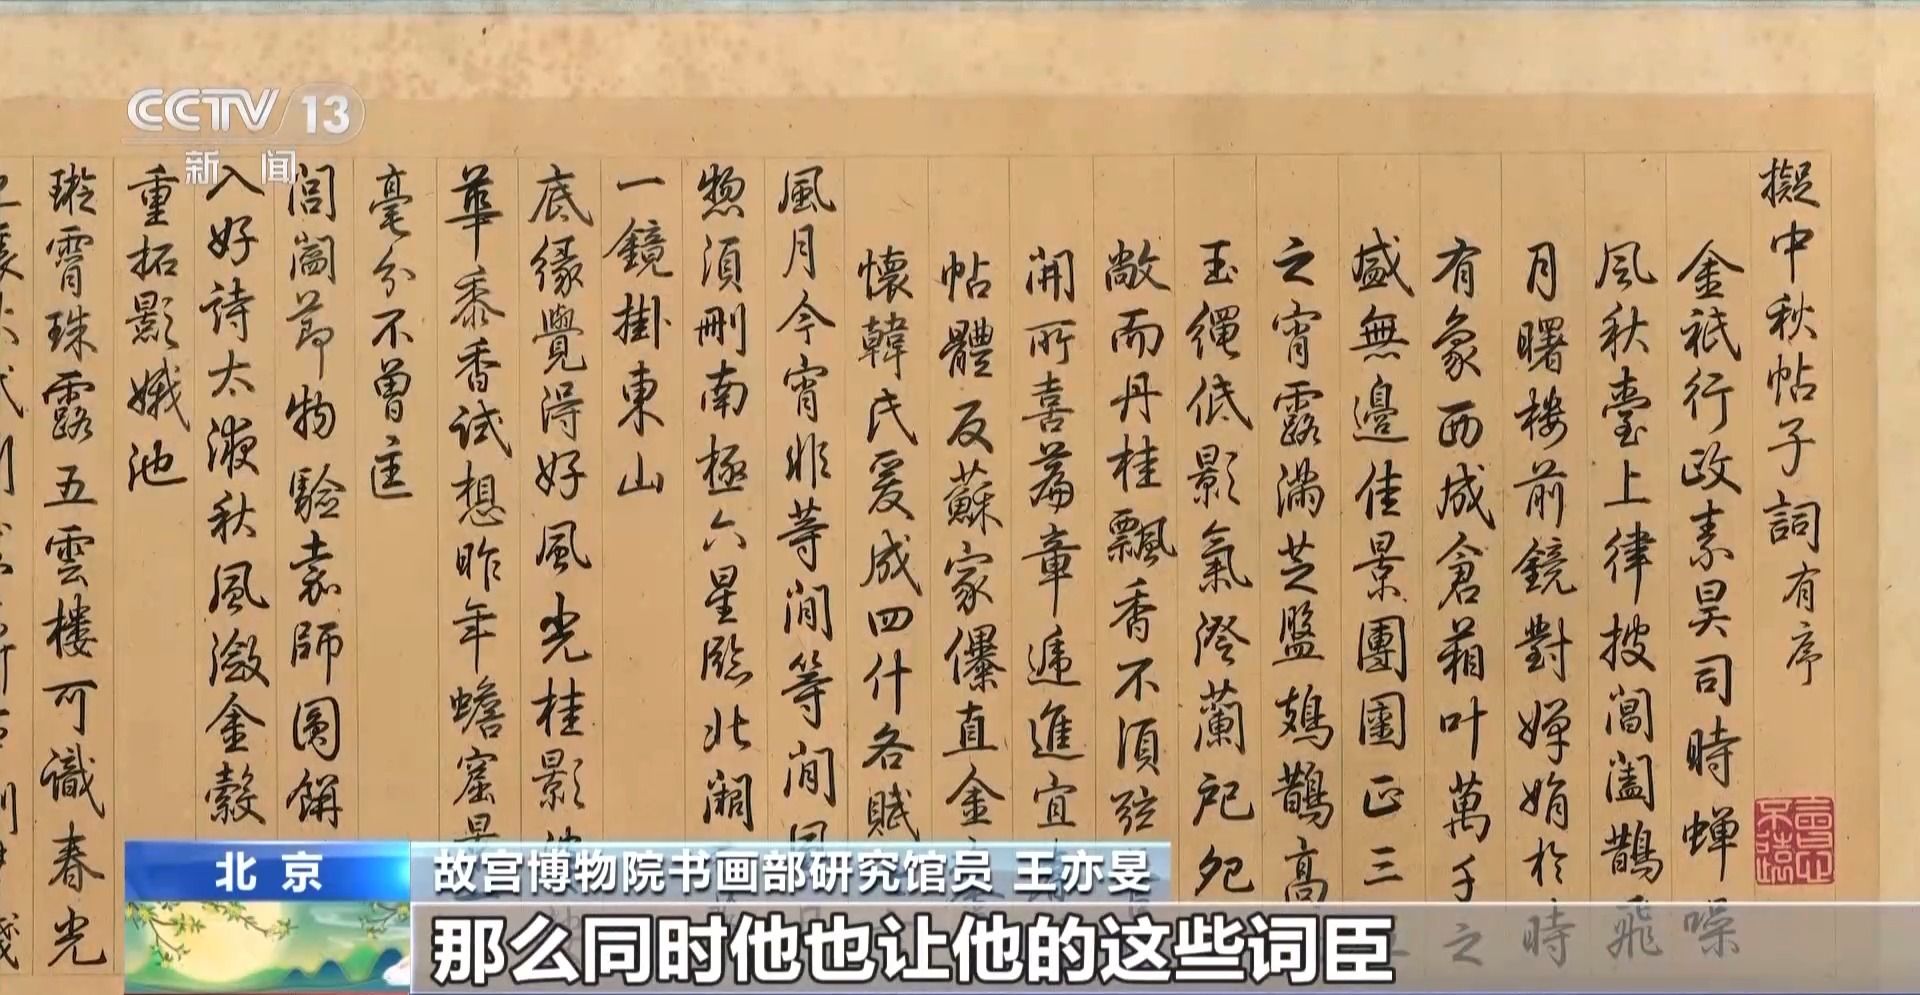 CCTV 13
新闻
擬中秋帖子詞有序
金祇行政素昊司時蟬噪
風秋臺上律披閶闔鵲飛
月曙樓前鏡對嬋娟於時
有象西成倉箱叶萬千之
盛無邊佳景團圞正三
之宵露滿芝盤鳷鵲高
玉繩低影氣澄蘭戺
敞而丹桂飄香不須
開所喜篇章遞進宜
帖體反蘇家儤直金
懷韓氏爰成四什各賦
風月今宵非等閒等閒
惣須刪南極六星臨北
一鏡掛東山
底緣覺得好風光桂影
華黍香試想昨年蟾窟
毫分不曾
閶闔節物驗素師圓餅
入好詩太液秋風瀲金縠
重拓影娥池
璇霄珠露五雲樓可識春光
北京
故宫博物院书画部研究馆员 王亦旻
那么同时他也让他的这些词臣